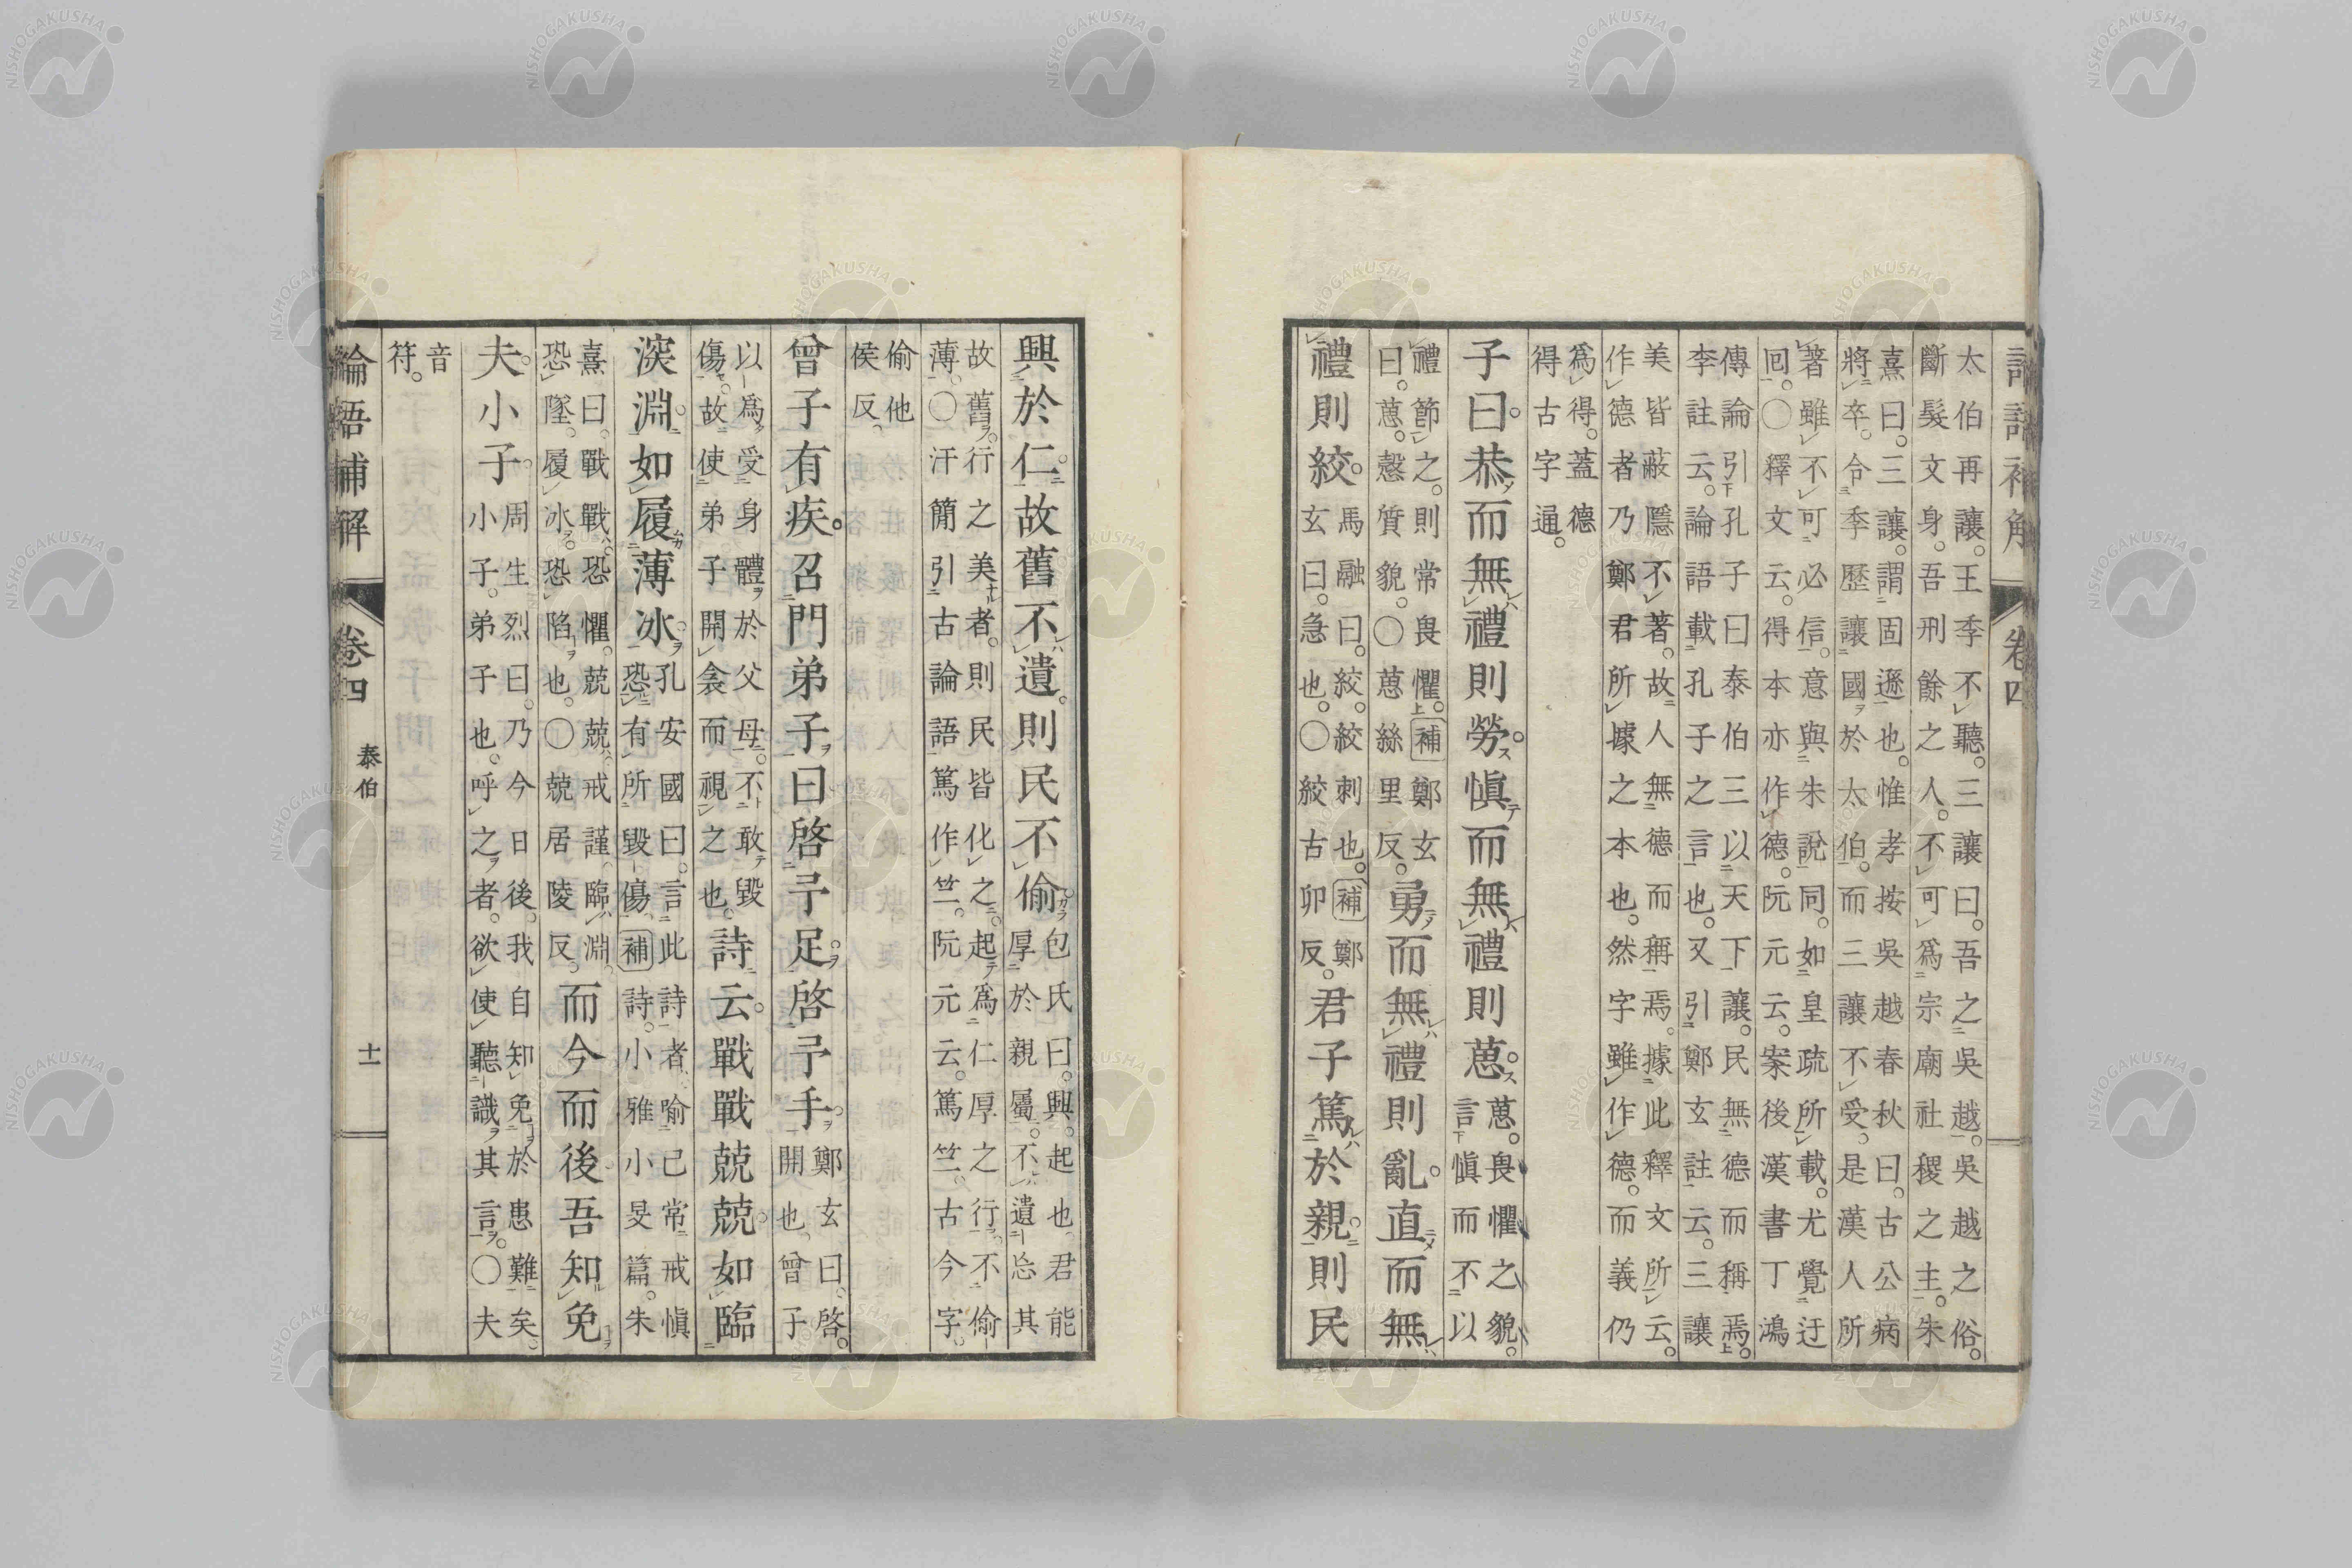 論語補解
卷四
太伯再讓。王季不聽。三讓曰。吾之吳越。吳越之俗。
斷髮文身。吾刑餘之人。不可爲宗廟社稷之主。朱
熹曰。三讓。謂固遜也。惟孝按吳越春秋曰。古公病
將卒。令季歷讓國於太伯。而三讓不受。是漢人所
著。雖不可必信。意與朱說同。如皇疏所載。尤覺迂
回。〇釋文云。得本亦作德。阮元云。案後漢書丁鴻
傳論引孔子曰泰伯三以天下讓。民無德而稱焉。
李註云。論語載孔子之言也。又引鄭玄註云。三讓
美皆蔽隱不著。故人無德而稱焉。據此釋文所云。
作德者乃鄭君所據之本也。然字雖作德。而義仍
爲得。蓋德
得古字通。
子曰。恭而無禮則勞。愼而無禮則葸。
葸。畏懼之貌。
言愼而不以
禮節之。則常畏懼。補鄭玄
曰。葸。愨質貌。〇葸絲里反。
勇而無禮則亂。直而無
禮則絞。
馬融曰。絞。絞刺也。補鄭
玄曰。急也。〇絞古卯反。
君子篤於親。則民
興於仁。故舊不遺。則民不偷。
包氏曰。興。起也。君能
厚於親屬。不遺忘其
故舊。行之美者。則民皆化之。起爲仁厚之行。不偷
薄。〇汗簡引古論語篤作竺。阮元云。篤竺。古今字。
偷他
侯反。
曾子有疾。召門弟子曰。啓予足。啓予手。
鄭玄曰。啓。
開也。曾子
以爲受身體於父母。不敢毀
傷。故使弟子開衾而視之也。
詩云。戰戰兢兢。如臨
深淵。如履薄冰。
孔安國曰。言此詩者。喻己常戒愼
恐有所毀傷。補詩。小雅小旻篇。朱
熹曰。戰戰。恐懼。兢兢。戒謹。臨淵。
恐墜。履冰。恐陷也。〇兢居陵反。
而今而後。吾知免
夫。小子。
周生烈曰。乃今日後。我自知免於患難矣。
小子。弟子也。呼之者。欲使聽識其言。〇夫
音
符。
論語補解
卷四
泰伯
十一